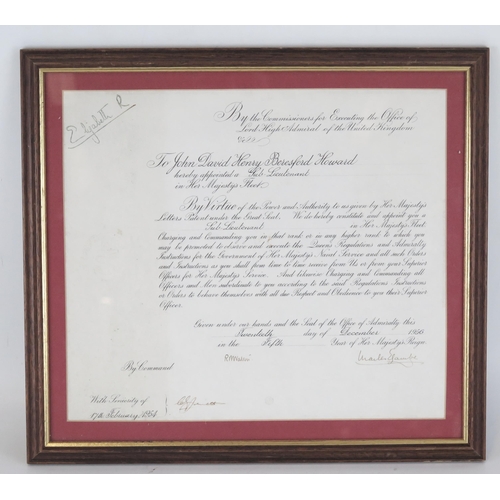 Elizabeth R
By the Commissioners for Executing the Office of
Lord High Admiral of the United Kingdom
&c. &c.
To John David Henry Beresford Howard
hereby appointed a Sub Lieutenant
in Her Majesty's Fleet.
By Virtue of the Power and Authority to us given by Her Majesty's
Letters Patent under the Great Seal. We do hereby constitute and appoint you a
Sub-Lieutenant in Her Majesty's Fleet.
Charging and Commanding you in that rank or in any higher rank to which you
may be promoted to observe and execute the Queen's Regulations and Admiralty
Instructions for the Government of Her Majesty's Naval Service and all such Orders
and Instructions as you shall from time to time receive from Us or from your Superior
Officers for Her Majesty's Service. And likewise Charging and Commanding all
Officers and Men subordinate to you according to the said Regulations Instructions
or Orders to behave themselves with all due Respect and Obedience to you their Superior
Officer.
Given under our hands and the Seal of the Office of Admiralty this
Twentieth day of December 1956
in the Fifth Year of Her Majesty's Reign
By Command
With Seniority of
17th February 1954